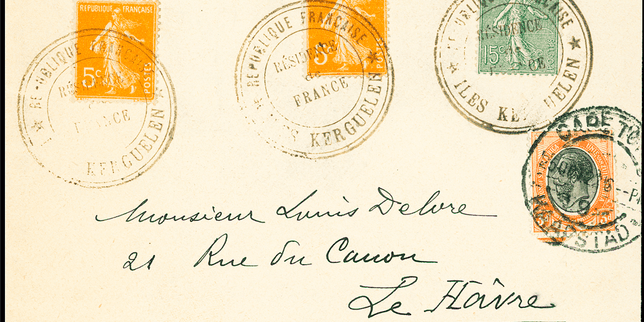 REPUBLIQUE FRANÇAISE
5c
POSTES
REPUBLIQUE FRANÇAISE
RÉSIDENCE
FRANCE
KERGUELEN
REPUBLIQUE FRANÇAISE
RÉSIDENCE
DE
FRANCE
ILES KERGUELEN
15c
RÉSIDENCE
ILES KERGUELEN
CAPE TO
KAAPSTAD
Monsieur Louis Delore
21 Rue du Canon
Le Hâvre